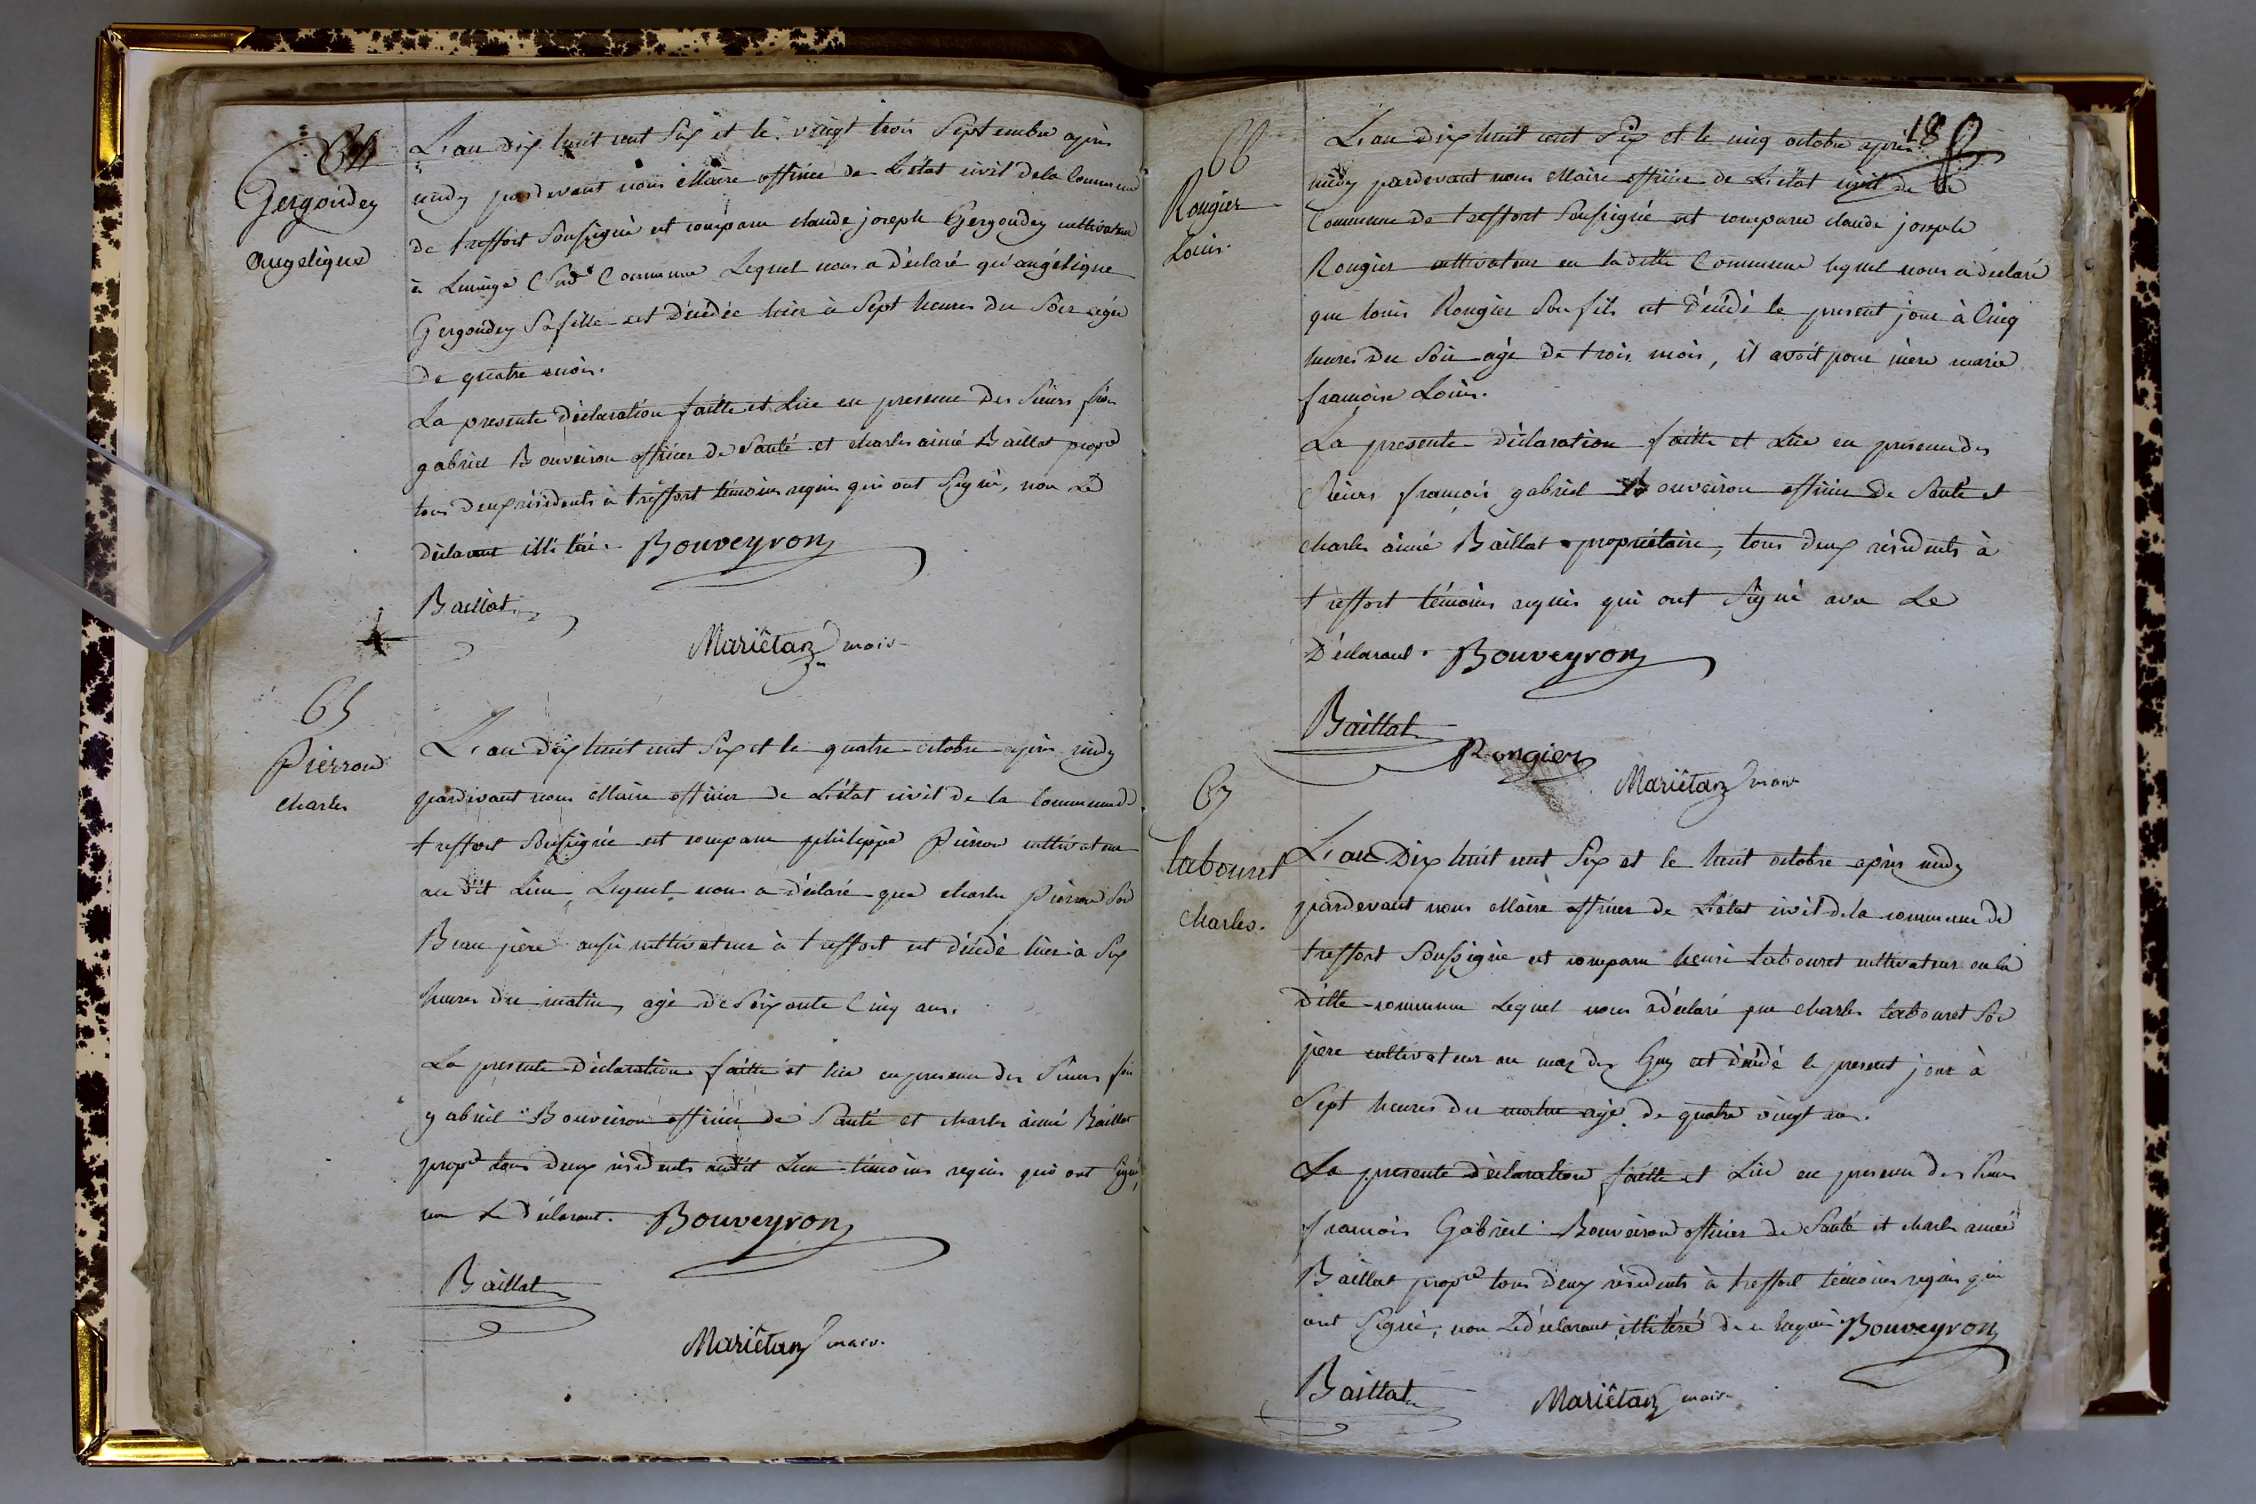 64
Gergoudey
Angelique
L'an Dix huit cent Six et le vingt trois Septembre après
midy pardevant nous Maire officier de L'état civil dela Commune
de treffort Soussigné est comparu claude joseph Gergoudey cultivateur
à Lucinge Commune Lequel nous a Déclaré qu'angélique
Gergoudey Sa fille est Décédée hier à Sept heures du Soir agée
de quatre mois.
La presente Déclaration faitte et Lue en presence des Sieurs frçois
gabriel Bouveiron officier de Santé et charles aimé Baillat propre
tous deux résidents à treffort témoins requis qui ont Signé, non Le
Déclarant illitéré. Bouveyron
Baillat
Mariêtan maire
65
Pierron
charles
L'an Dix huit cent Six et le quatre octobre après midy
pardevant nous Maire officier de L'état civil de la Commune de
treffort Soussigné est comparu philippe Pierron cultivateur
au dit Lieu, Lequel nous a déclaré que charles Pierron Son
Beau père aussi cultivateur à treffort est décédé hier à Six
heures du matin, agé de Soixante Cinq ans.
La presente Déclaration faitte et lue en presence des Sieurs frçois
gabriel Bouveiron officier de Santé et charles aimé Baillat
propre tous deux résidents audit Lieu témoins requis qui ont Signé,
non Le Déclarant. Bouveyron
Baillat
Mariêtan maire
18
66
Rougier
Louis.
L'an dix huit cent Six et le cinq octobre après
midy pardevant nous Maire officier de L'état civil de la
Commune de treffort Soussigné est comparu claude joseph
Rougier cultivateur en laditte Commune lequel nous a déclaré
que louis Rougier Son fils est décédé le present jour à Cinq
heures du Soir agé de trois mois, il avoit pour mère marie
françoise Louis.
La presente Déclaration faitte et Lue en presence des
Sieurs françois gabriel Bouveiron officier de Santé et
charles aimé Baillat propriétaire, tous deux résidents à
treffort témoins requis qui ont Signé avec Le
Déclarant. Bouveyron
Baillat
Rongier
Mariêtan maire
67
tabouret
Charles.
L'an Dix huit cent Six et le huit octobre après midy
pardevant nous Maire officier de L'état civil dela commune de
treffort Soussigné est comparu henri tabouret cultivateur en la
ditte commune Lequel nous a déclaré que charles tabouret Son
père cultivateur au maz des Guy est décédé le present jour à
Sept heures du matin agé de quatre vingt ans.
La presente Déclaration faitte et Lue en presence des Sieurs
françois Gabriel Bouveiron officier de Santé et charles aimé
Baillat propre tous deux résidents à treffort témoins requis qui
ont Signé, non Le Déclarant illitéré de ce requis Bouveyron
Baillat
Mariêtan maire